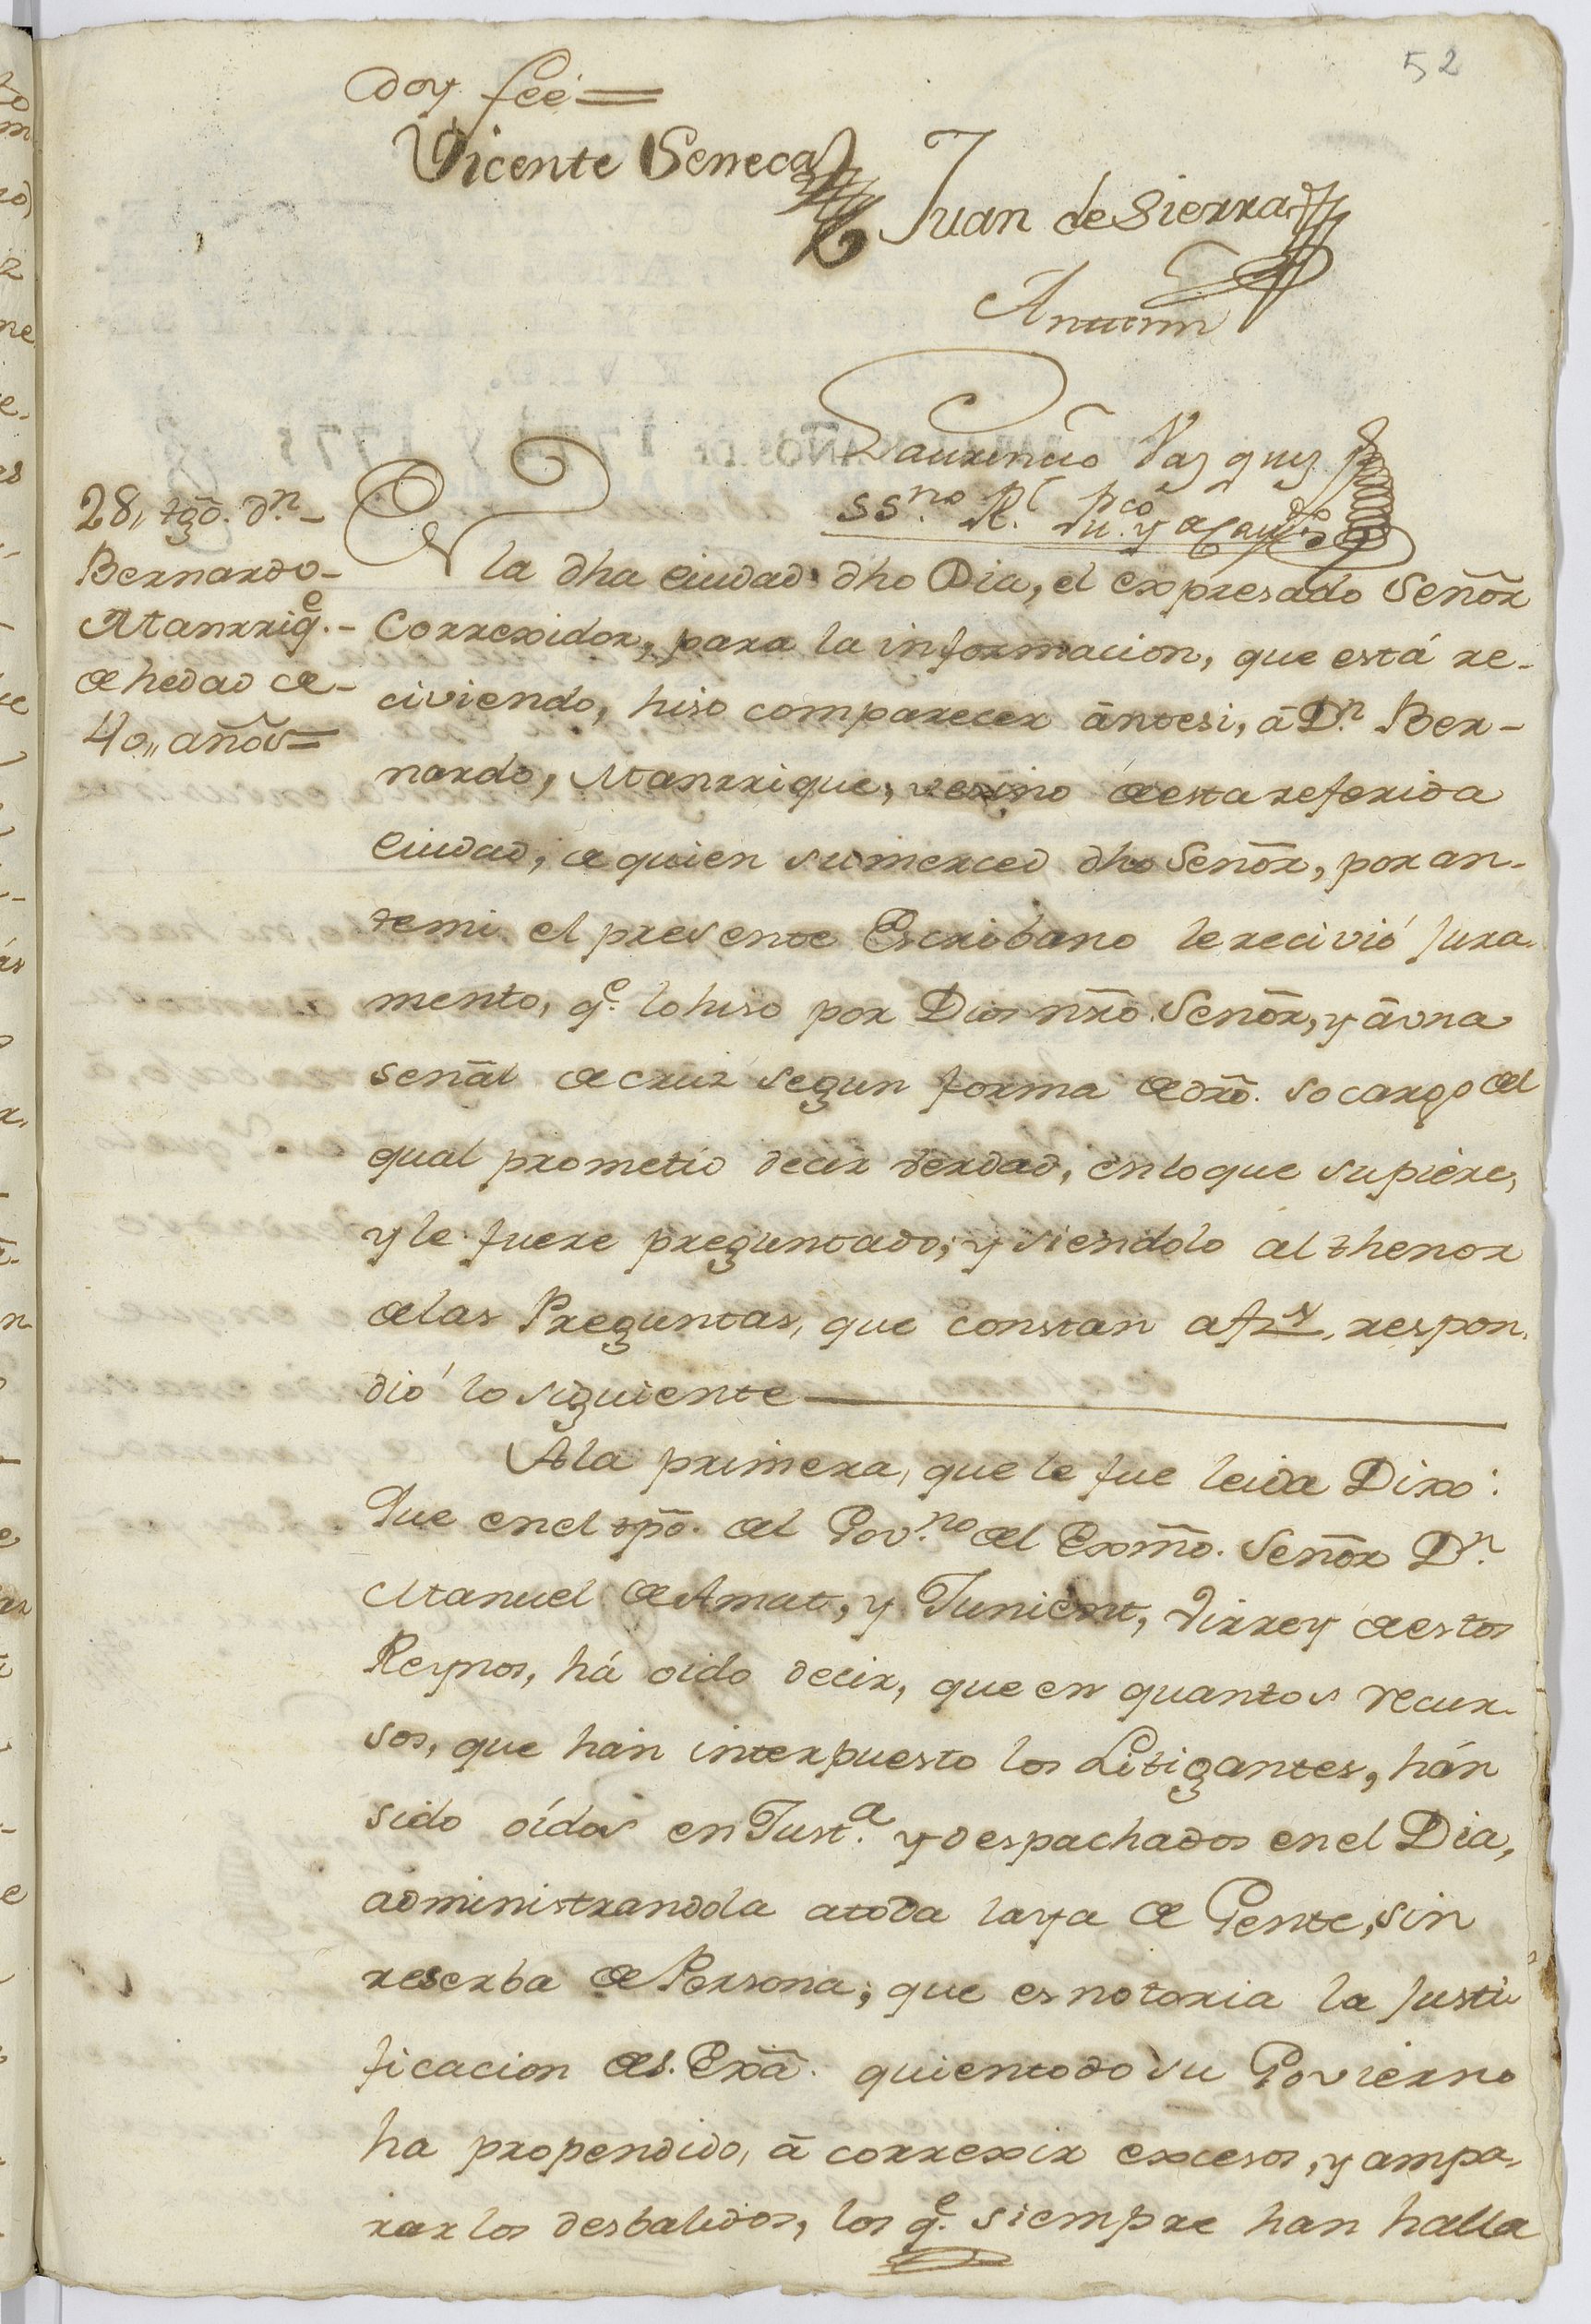 52
doy feé=
Vicente Seneca
Juan de Sierra
Antemi
Laurencio Vasquez
ss.no R.l pu.co y
28,, tgō. D.n -
Bernardo -
Manrriq.e -
de hedad de -
40,, años=
En la dha ciudad dho Dia, el expresado Señor
Correxidor, para la informacion, que está re-
civiendo, hiso comparecer ãntesi, ã D.n Ber-
nardo, Manrrique, vesino de esta referida
ciudad, de quien su merced dho Señor, por an-
temi el presente Escribano le recivió Jura-
mento, q.e lo hiso por Dios nrõ Señor, y ãvna
señal de cruz segun forma de drõ. so cargo del
qual prometio decir verdad, en lo que supiere,
y le fuere preguntado; y siendolo al thenor
de las Preguntas, que constan afs. respon-
dió lo siguiente
A la primera, que le fue leida Dixo:
Que en el tpō. del Gov.no del Exmō. Señor D.n
Manuel de Amat, y Junient, Virrey de estos
Reynos, há oido decir, que en quantos recur-
sos, que hán interpuesto los Litigantes, hán
sido oídos en Just.a y despachados en el Dia,
administrandola a toda laya de Gente, sin
reserba de Persona; que es notoria la Justi-
ficacion de s. Exã. quien todo su Govierno
ha propendido, ã correxir excesos, y ampa-
rar los desbalidos, los q.e siempre han halla